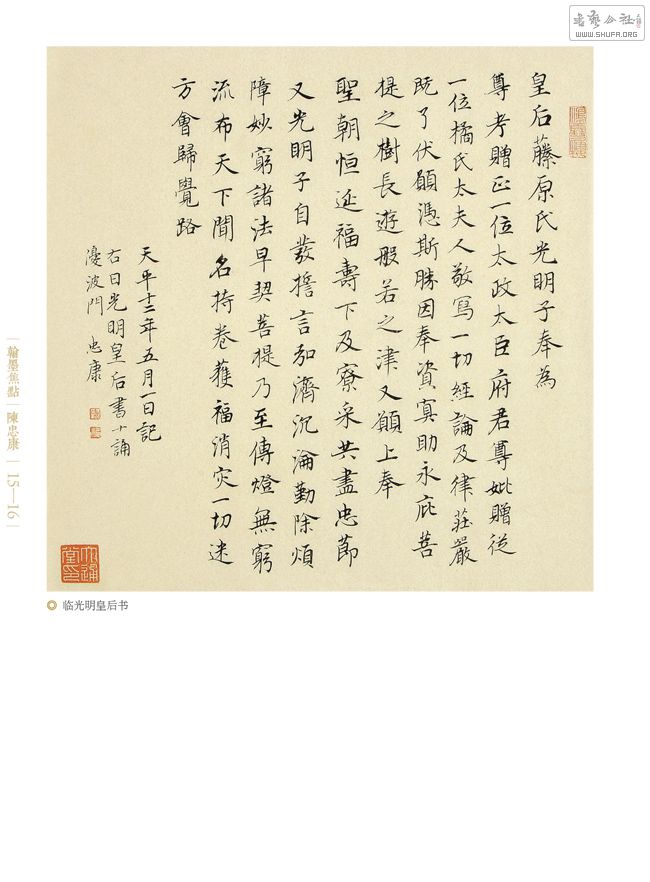 書藝公社
WWW.SHUFA.ORG
皇后藤原氏光明子奉為
尊考贈正一位太政太臣府君尊妣贈従
一位橘氏太夫人敬寫一切經論及律莊嚴
既了伏願憑斯勝因奉資冥助永庇菩
提之樹長遊般若之津又願上奉
聖朝恒延福壽下及寮采共盡忠節
又光明子自發誓言弘濟沉淪勤除煩
障妙窮諸法早契菩提乃至傳燈無窮
流布天下聞名持卷獲福消灾一切迷
方會歸覺路
天平十二年五月一日記
右日光明皇后書
波門 忠康
翰墨焦點 陳忠康 15—16
临光明皇后书